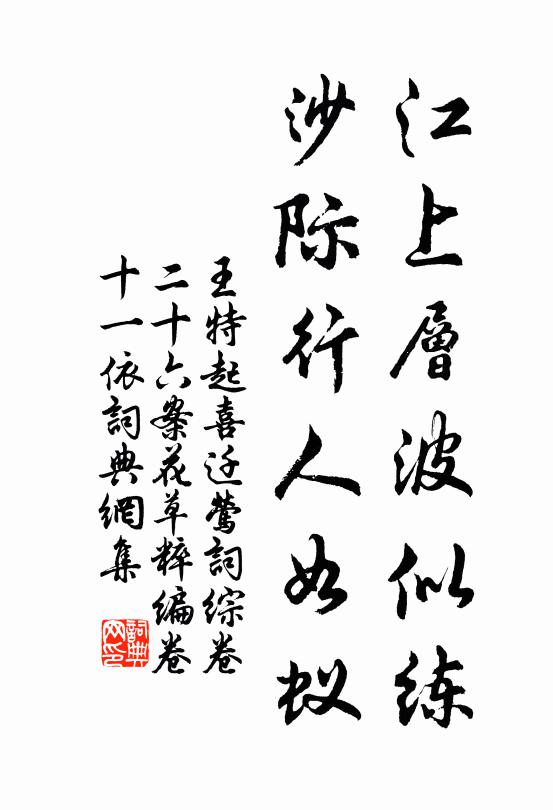 江上層波似练
沙际行人如蚁
王特起喜迁莺詞综卷
二十六案花草粹编卷
十一依詞典網集
詞典網印